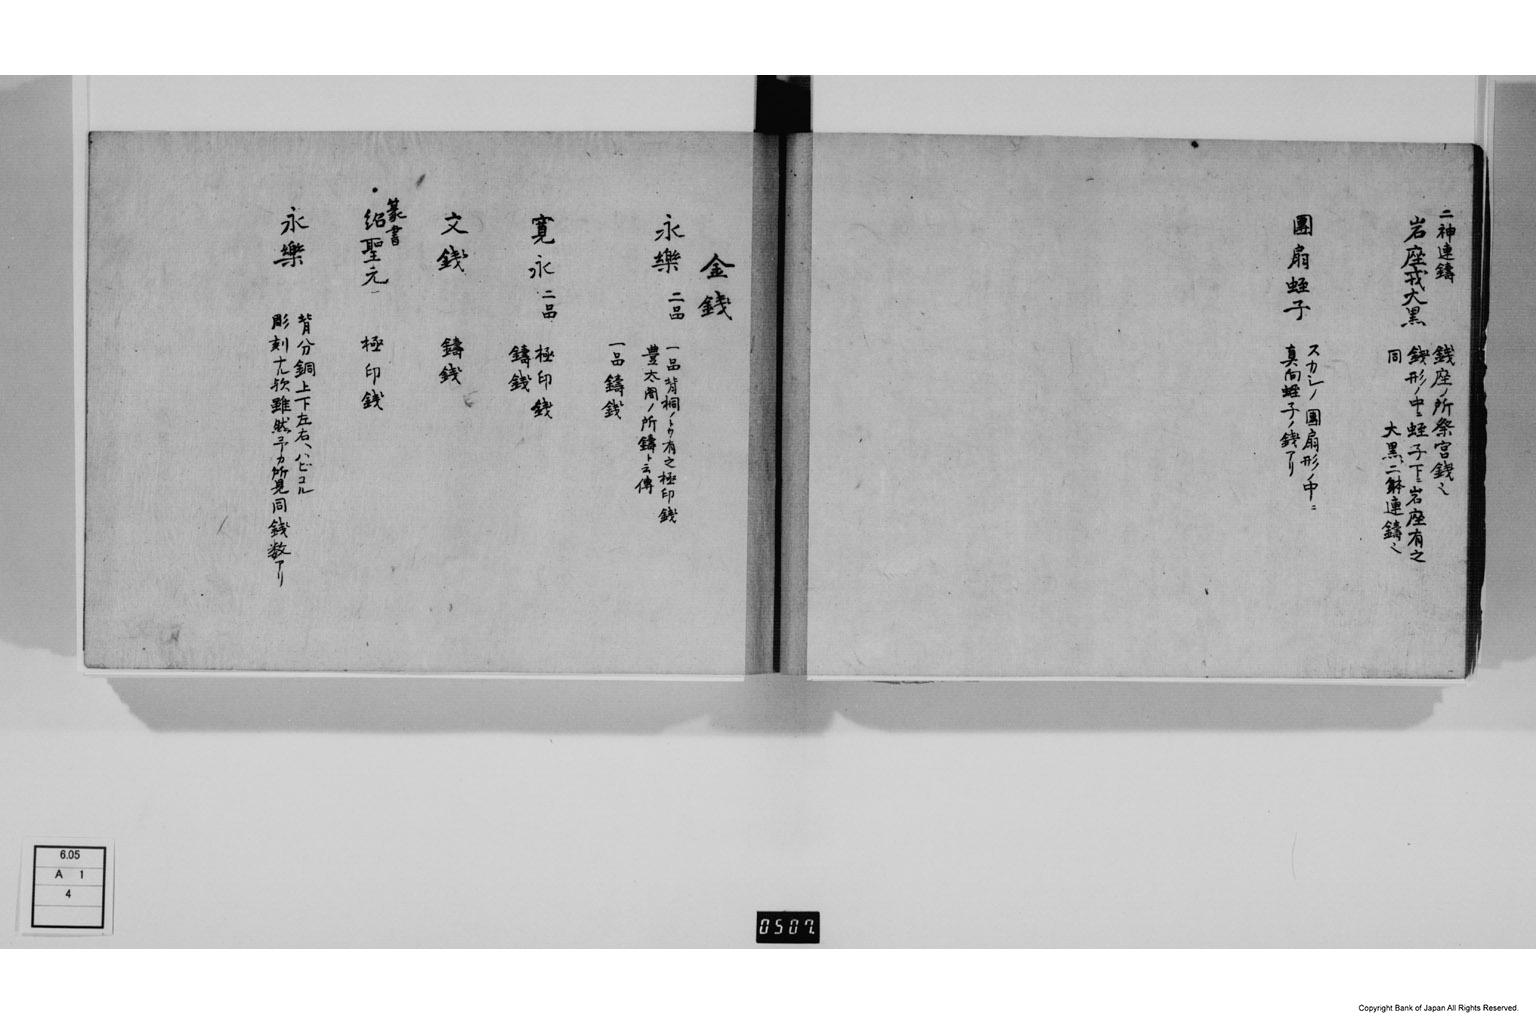 二神連鑄
岩座戎大黒
錢座ノ所祭宮錢也
錢形ノ中ニ蛭子下ニ岩座有之
同 大黒二躰連鑄也
團扇蛭子
スカシノ團扇形ノ中ニ
真向蛭子ノ錢アリ
金錢
永樂 二品
一品背桐ノ有之極印錢
豊太閤ノ所鑄ト云傳
一品鑄錢
寛永 二品
極印錢
鑄錢
文錢 鑄錢
篆書
紹聖元一 極印錢
永樂
背分銅上下左右
彫刻尤欤雖然予カ所見同錢数アリ
6.05
A 1
4
0507.
Copyright Bank of Japan All Rights Reserved.